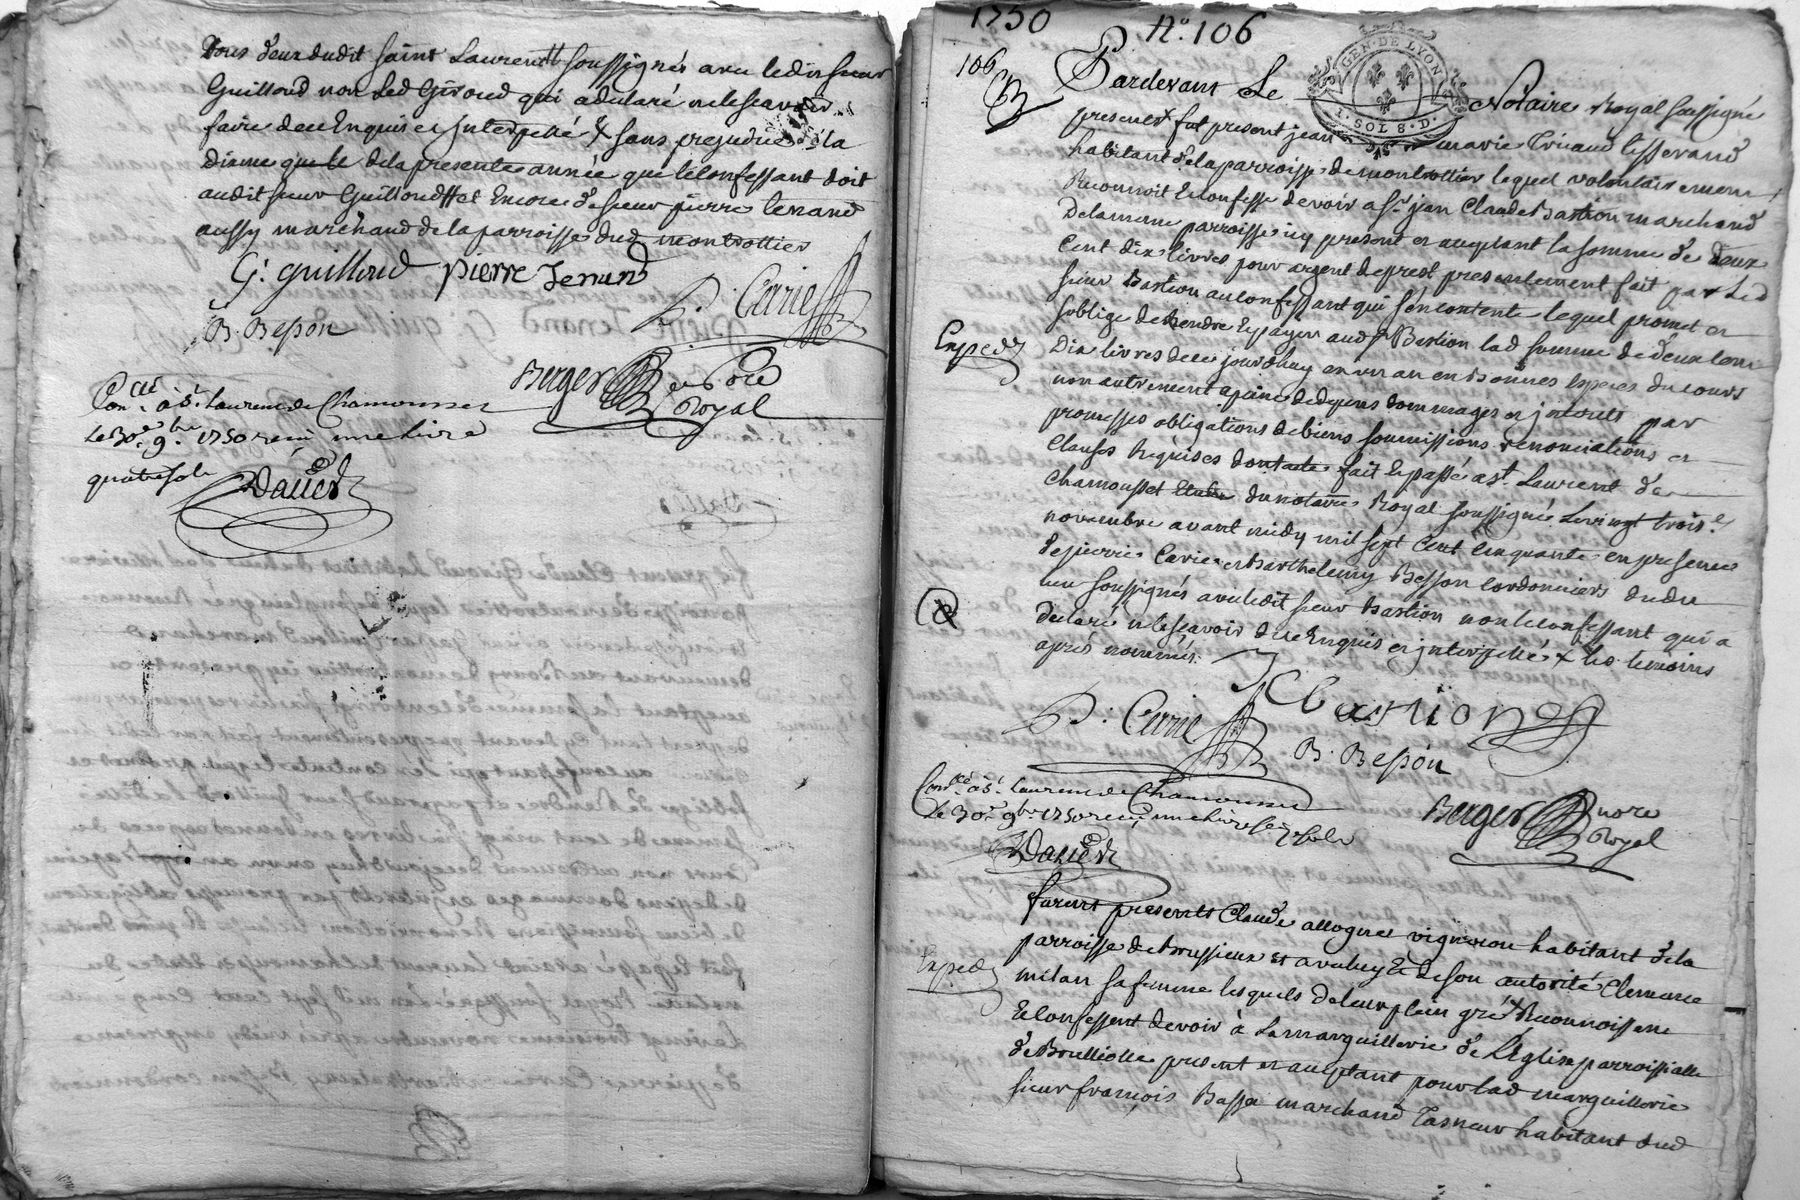 tous deux dudit saint Laurent soussignés avec ledit sieur
Guilloud non led Giroud qui a declaré ne le scavoir
faire de ce Enquis et Interpellé & sans prejudice à la
disme que de la presente année que le Confessant doit
audit sieur Guilloud et Encore de sieur pierre tenand
aussy marchand de la parroisse dud montrottier
G. guilloud pierre Tenand
P. Carie
B. Besson
Berger no.re
Royal
Con.llé à S.t Laurent de Chamousset
le 30.e 9.bre 1750 receu une livre
quatre sols
Daver
1750 N.o 106
106
GEN. DE LYON
1. SOL 8. D.
Pardevant Le Notaire Royal soussigné
present fut present jean marie tisserand
habitant de la parroisse de montrottier lequel volontairement
Reconnoit Et Confesse devoir a S.r jean Claude Bastion marchand
De la meme parroisse icy present et acceptant la somme de deux
Cent dix livres pour argent de prest presentement fait par led
sieur Bastion au Confessant qui s'en contente lequel promet et
s'oblige de Rendre Et payer aud S.r Bastion lad somme de deux Cent
Exped
Dix livres de ce jourdhuy en un an en bonnes Especes du cours
non autrement a peine de depens dommages et jnterets par
promesses obligations de biens soumissions renonciations et
Clauses Requises dont acte fait Et passé a S.t Laurent de
Chamousset Etude du notaire Royal soussigné Le vingt trois.e
novembre avant midy mil sept Cent Cinquante en presence
de pierre Carie et Barthelemy Besson Cordonniers dudit
lieu soussignés avec ledit sieur Bastion non le confessant qui a
declaré ne le scavoir de ce Enquis et jnterpellé & les temoins
après nommés.
J C Bastion
P. Carie
B. Besson
Con.llé à S.t Laurent de Chamousset
le 30.e 9.bre 1750 receu une livre sols
Daver
Berger no.re
Royal
furent presents Claude allognet vigneron habitant de la
Exped
parroisse de Brussieux Et avec luy Et de son autorité Clemence
milan sa femme lesquels de leur plein gré Reconnoissent
Et Confessent devoir à La marguillerie de L'Eglise parroissialle
de Brulliolle present et acceptant pour lad marguillerie
sieur françois Bassa marchand Tasneur habitant dud